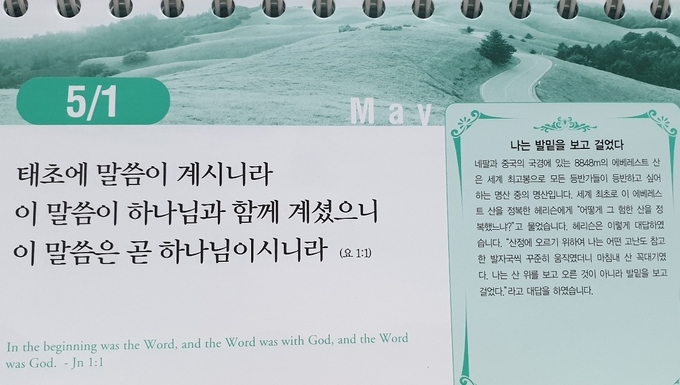 5/1
May
태초에 말씀이 계시니라
이 말씀이 하나님과 함께 계셨으니
이 말씀은 곧 하나님이시니라 (요 1:1)
In the beginning was the Word, and the Word was with God, and the Word
was God. - Jn 1:1
나는 발밑을 보고 걸었다
네팔과 중국의 국경에 있는 8848m의 에베레스트 산
은 세계 최고봉으로 모든 등반가들이 등반하고 싶어
하는 명산 중의 명산입니다. 세계 최초로 이 에베레스
트 산을 정복한 헤리슨에게 "어떻게 그 험한 산을 정
복했느냐?"고 물었습니다. 헤리슨은 이렇게 대답하였
습니다. "산정에 오르기 위하여 나는 어떤 고난도 참고
한 발자국씩 꾸준히 움직였더니 마침내 산 꼭대기였
다. 나는 산 위를 보고 오른 것이 아니라 발밑을 보고
걸었다."라고 대답을 하였습니다.